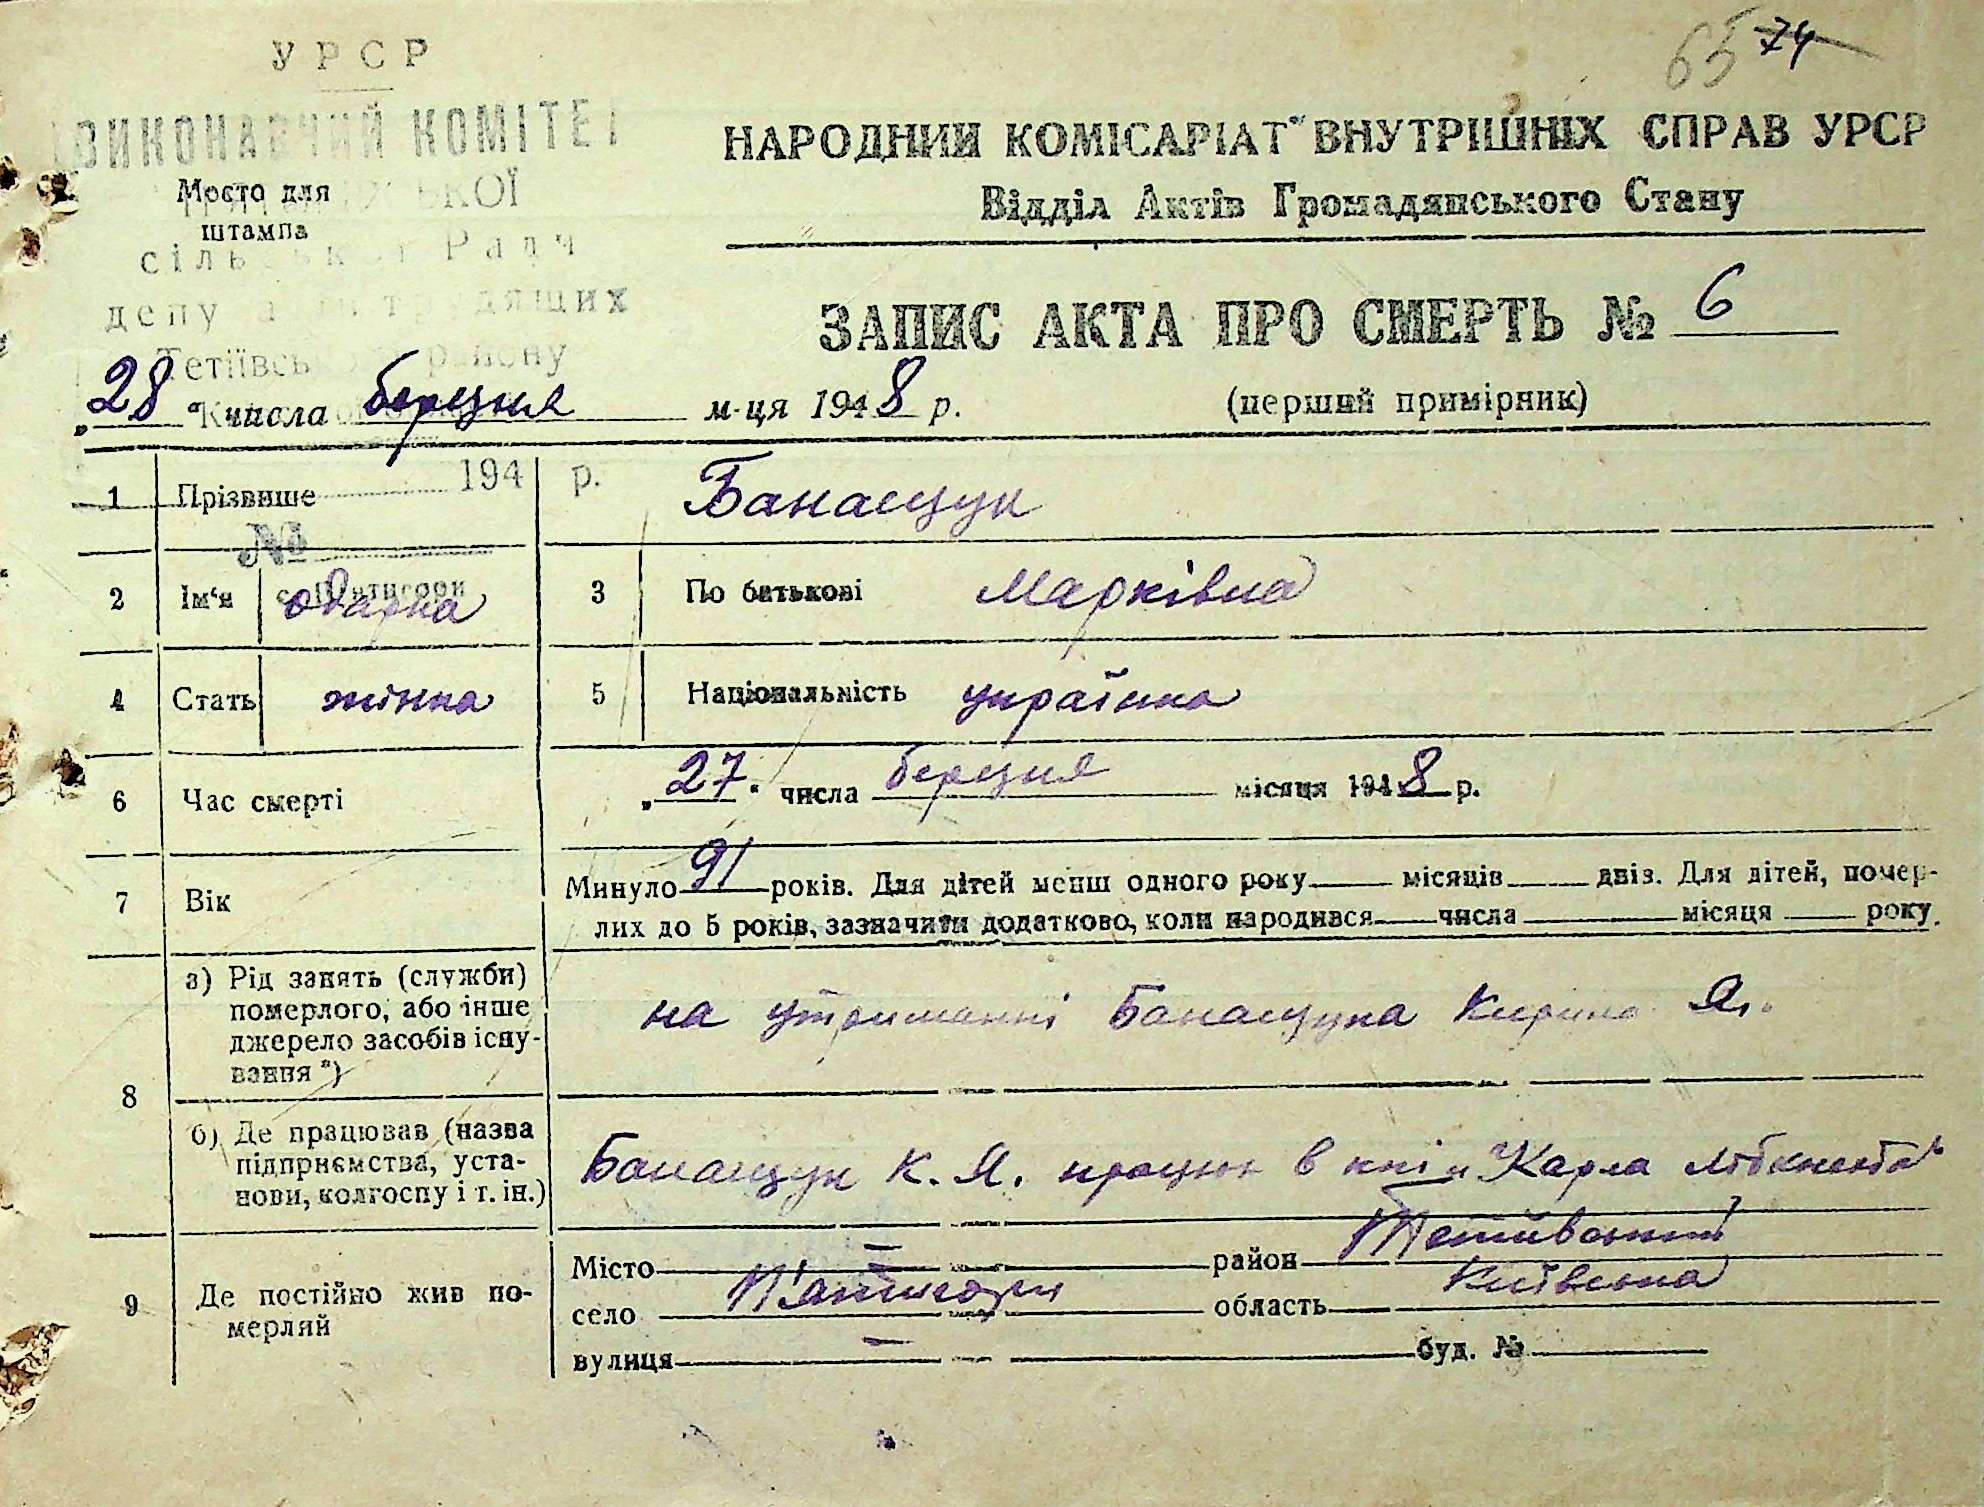 65 74
УРСР
ВИКОНАВЧИЙ КОМІТЕТ
НАРОДНИЙ КОМІСАРІАТ ВНУТРІШНІХ СПРАВ УРСР
Место для
штампа
Відділ Актів Громадянського Стану
сільської Ради
депутатів трудящих
ЗАПИС АКТА ПРО СМЕРТЬ № 6
Тетіївського району
„28“ числа березня м-ця 1948 р.
(перший примірник)
194 р.
1 Прізвише Банащук
№
с. Пятигори
2 Ім'я Одарка 3 По батькові Марківна
4 Стать жінка 5 Національність українка
6 Час смерті „27“ числа березня місяця 1948 р.
7 Вік Минуло 91 років. Для дітей менш одного року місяців днів. Для дітей, помер-
лих до 5 років, зазначити додатково, коли народився числа місяця року.
8 а) Рід занять (служби)
померлого, або інше
джерело засобів існу-
вання *)
на утриманні Банащука Кирила Я.
б) Де працював (назва
підприємства, уста-
нови, колгоспу і т. ін.)
Банащук К. Я. працює в к-пі Карла Лібкнехта
9 Де постійно жив по-
мерлий
Місто — район Тетіївський
село П'ятигори область Київська
вулиця — буд. №